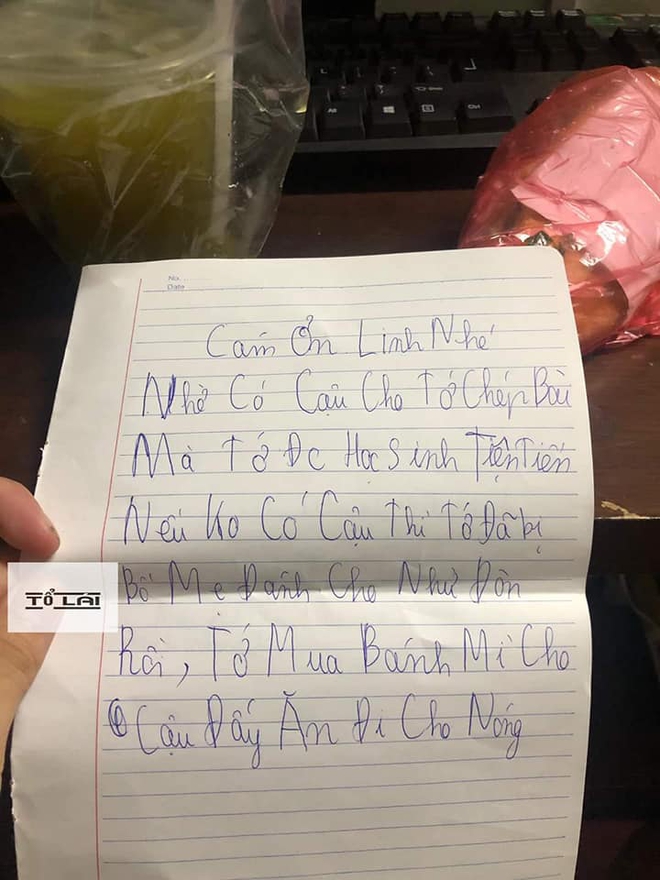 No.
Date
Cám Ơn Linh Nhé
Nhờ Có Cậu Cho Tớ Chép Bài
Mà Tớ Đc Học Sinh Tiên Tiến
Nếu Ko Có Cậu Thì Tớ Đã bị
Bố Mẹ Đánh Cho Như Đòn
Rồi, Tớ Mua Bánh Mì Cho
Cậu Đấy Ăn Đi Cho Nóng
TỔ LÁI
Alt
Ctrl